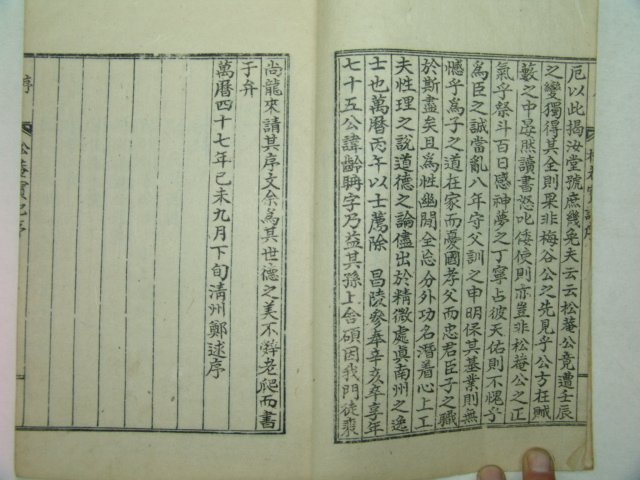 厄以此揭汝堂號庶幾免夫云云松菴公竟遭壬辰
之變獨得其全則果非梅谷公之先見乎公方在賊
藪之中晏然讀書怒叱倭使則亦豈非松菴公之正
氣乎祭斗百日感神夢之丁寧占彼天佑則不愧乎
爲臣之誠當亂八年守父訓之申明保其基業則無
憾乎爲子之道在家而憂國孝父而忠君臣子之職
於斯盡矣且爲性幽閒全忘分外功名潛着心上工
夫性理之說道德之論儘出於精微處眞南州之逸
士也萬曆丙午以士薦除 昌陵參奉辛亥卒享年
七十五公諱齡聃字乃益其孫上舍碩因我門徒裴
尚龍來請其序文余爲其世德之美不辭老爬而書
于弁
萬曆四十七年己未九月下旬清州鄭逑序